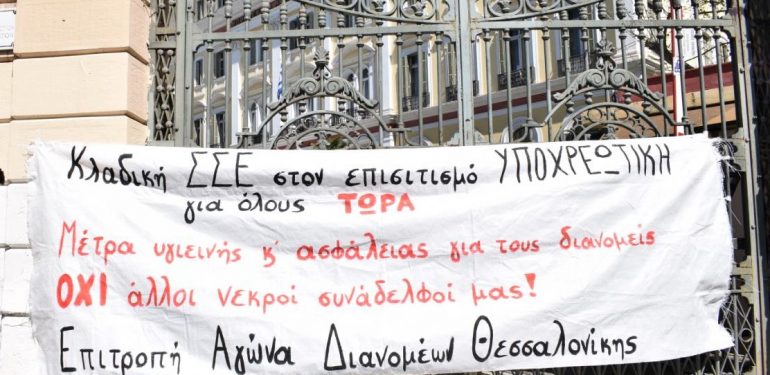 Κλαδική ΣΣΕ στον επισιτισμό ΥΠΟΧΡΕΩΤΙΚΗ
για όλους ΤΩΡΑ
Μέτρα υγιεινής κ' ασφάλειας για τους διανομείς
ΟΧΙ άλλοι νεκροί συνάδελφοί μας!
Επιτροπή Αγώνα Διανομέων Θεσσαλονίκης